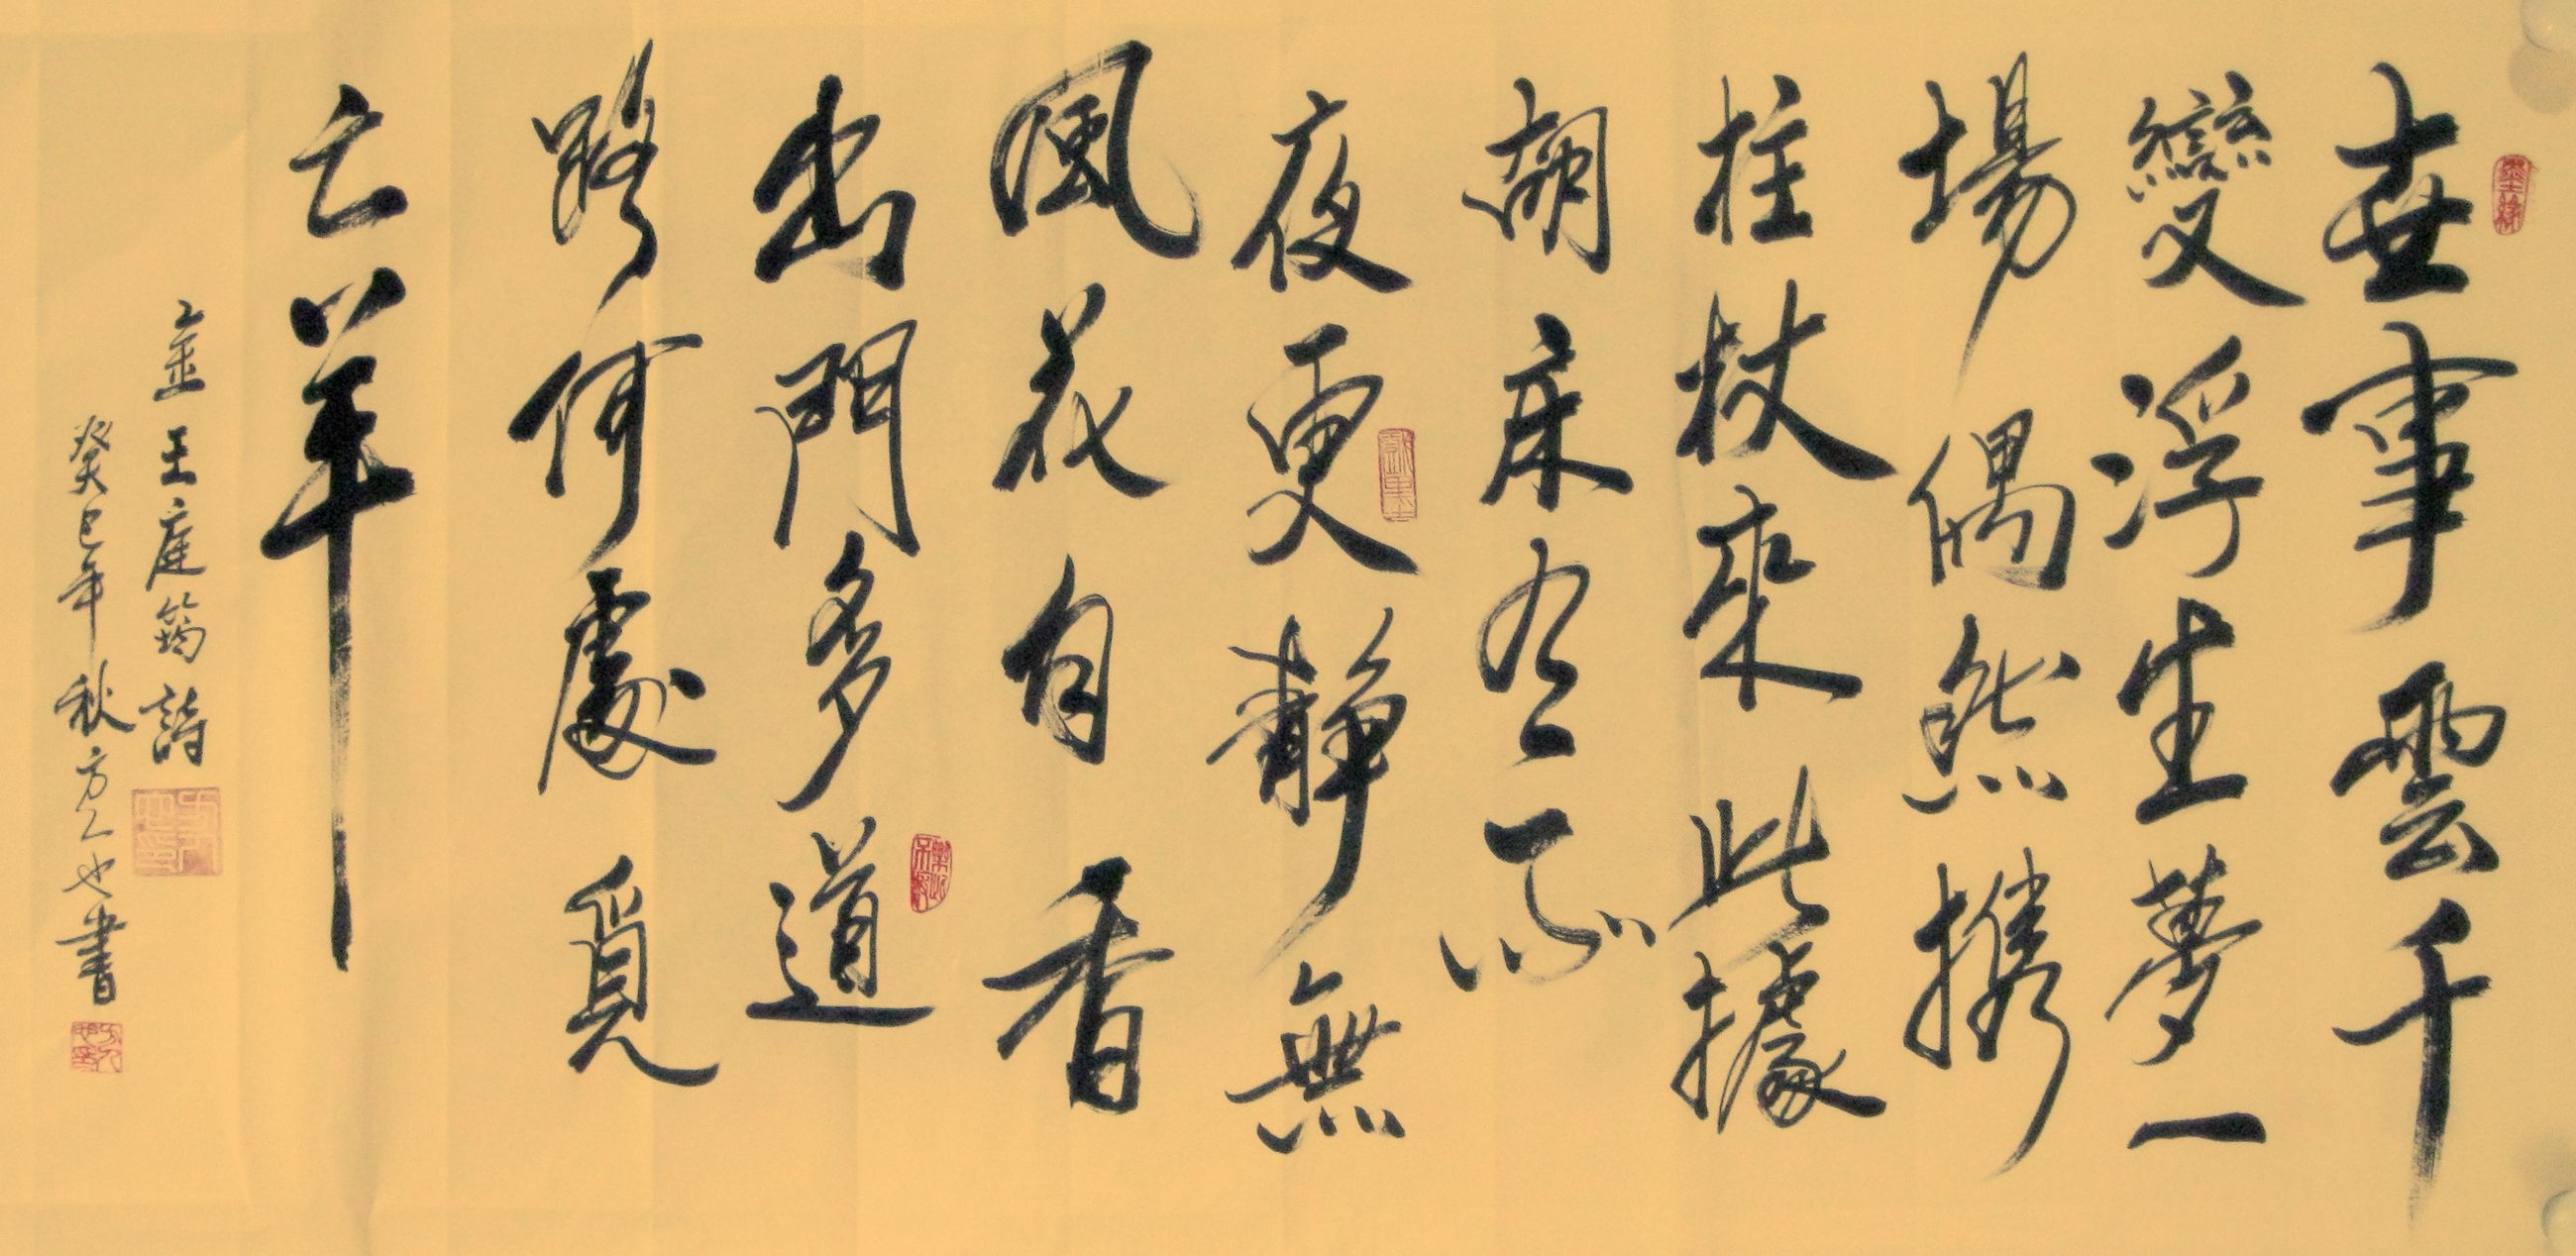 世事雲千
變浮生夢一
場偶然携
拄杖來此據
胡床有雨
夜更靜無
風花自香
出門多道
路何處覓
亡羊
金 王庭筠詩
癸巳年秋方人也書